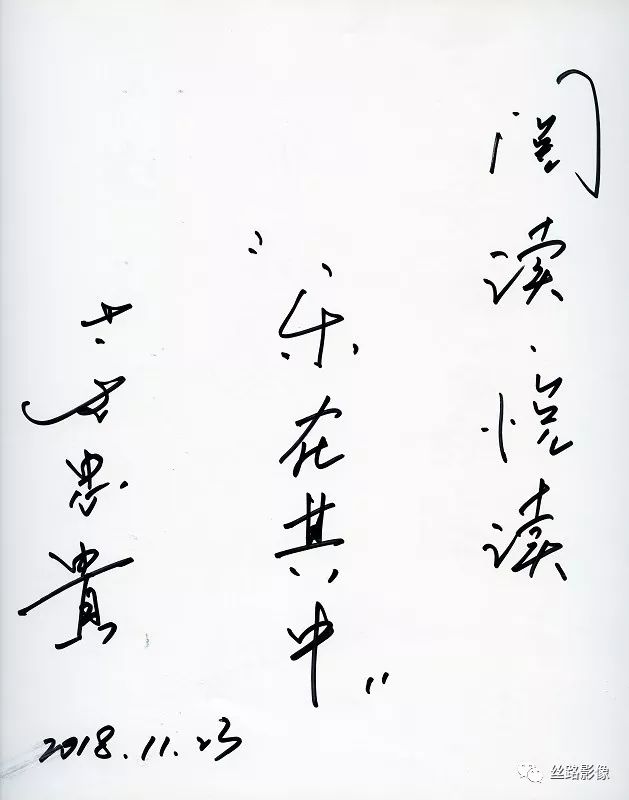 阅读·悦读
"乐在其中"
忠貴
2018.11.23
丝路影像